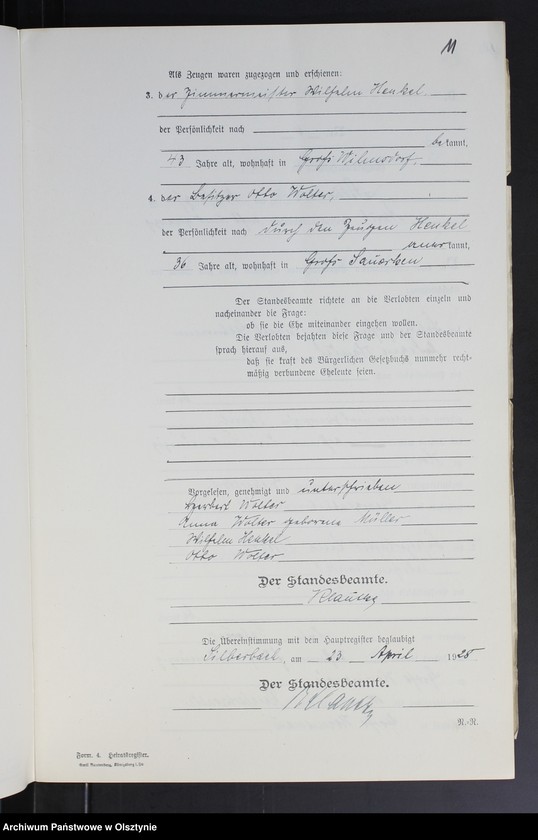 11
Als Zeugen waren zugezogen und erschienen:
3. der Zimmermeister Wilhelm Henkel
der Persönlichkeit nach
bekannt,
43 Jahre alt, wohnhaft in Groß Wilmsdorf.
4. der Besitzer Otto Wolter,
der Persönlichkeit nach durch den Zeugen Henkel
anerkannt,
36 Jahre alt, wohnhaft in Groß Sauerken
Der Standesbeamte richtete an die Verlobten einzeln und
nacheinander die Frage:
ob sie die Ehe miteinander eingehen wollen.
Die Verlobten bejahten diese Frage und der Standesbeamte
sprach hierauf aus,
daß sie kraft des Bürgerlichen Gesetzbuchs nunmehr recht-
mäßig verbundene Eheleute seien.
Vorgelesen, genehmigt und unterschrieben
Herbert Wolter
Anna Wolter geborene Müller
Wilhelm Henkel
Otto Wolter
Der Standesbeamte.
Die Übereinstimmung mit dem Hauptregister beglaubigt
Silberbach, am 23 April 1925
Der Standesbeamte.
N.-R.
Form. 4. Heiratsregister.
Archiwum Państwowe w Olsztynie